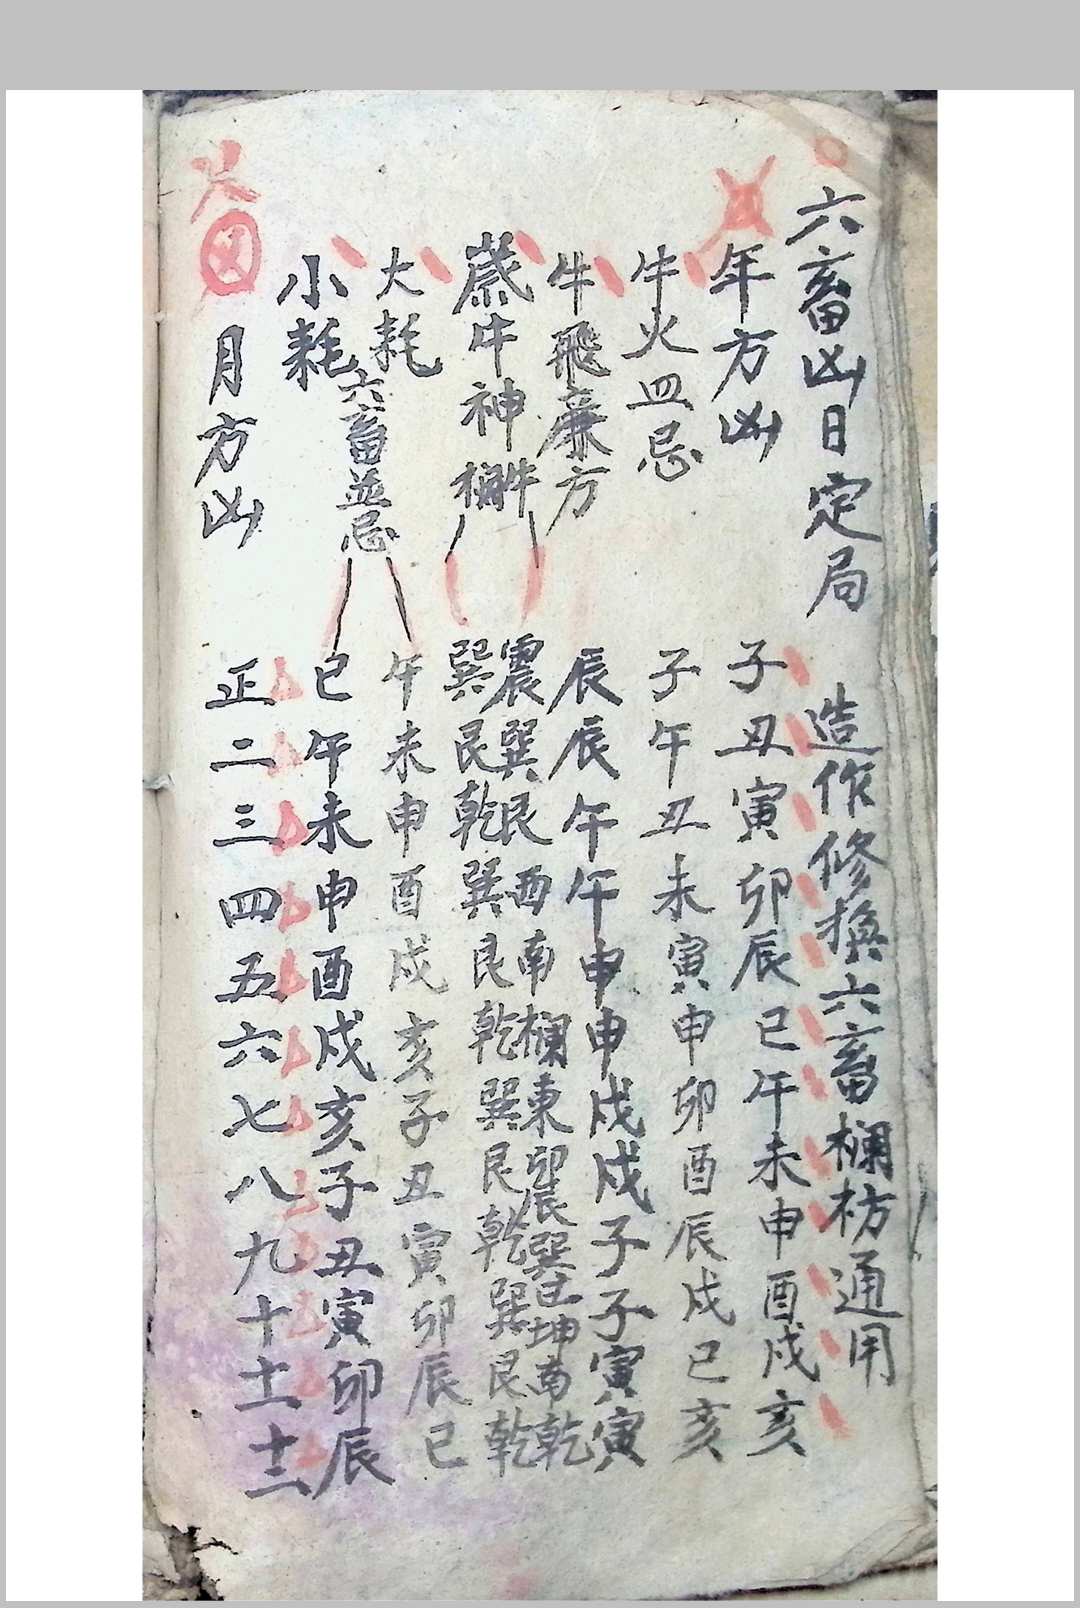 六畜凶日定局 造作修換六畜欄枋通用
年方凶 子丑寅卯辰巳午未申酉戌亥
牛火血忌 子午丑未寅申卯酉辰戌巳亥
牛飛廉方 辰辰午午申申戌戌子子寅寅
牛 震巽艮西南欄東卯辰巽巳坤南乾
歲牛神欄 巽艮乾巽艮乾巽艮乾巽艮乾
大耗 午未申酉戌亥子丑寅卯辰巳
六畜並忌
小耗 巳午未申酉戌亥子丑寅卯辰
月方凶 正二三四五六七八九十十一十二